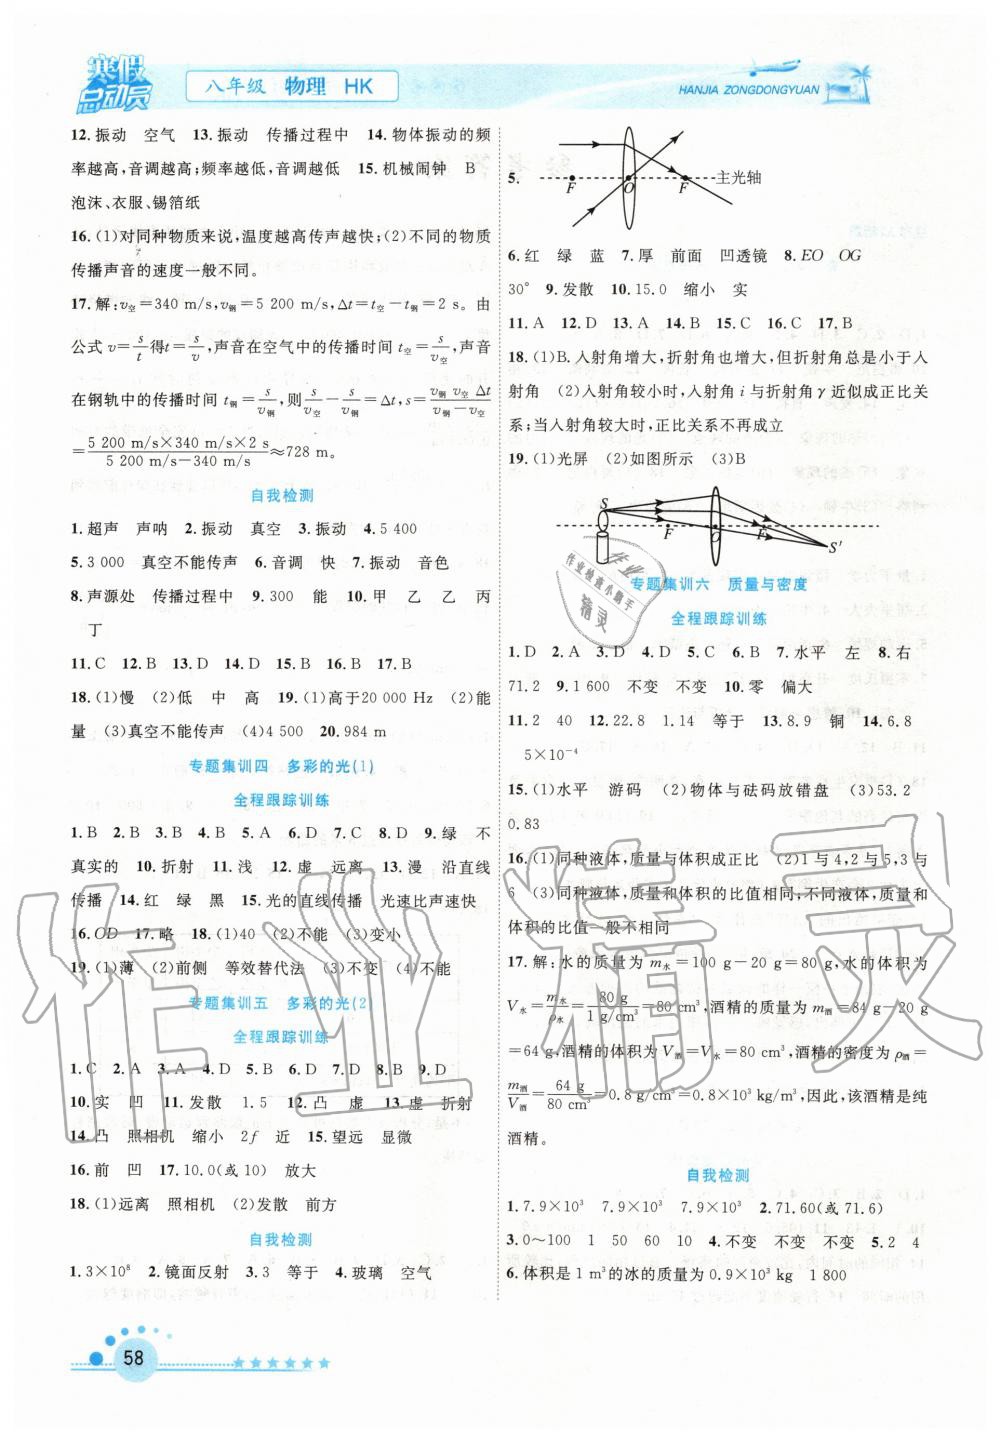 寒假
总动员
八年级 物理 HK
HANJIA ZONGDONGYUAN
12.振动 空气 13.振动 传播过程中 14.物体振动的频
率越高,音调越高;频率越低,音调越低 15.机械闹钟 B
泡沫、衣服、锡箔纸
16.(1)对同种物质来说,温度越高传声越快;(2)不同的物质
传播声音的速度一般不同。
17.解:v空=340 m/s,v钢=5 200 m/s,Δt=t空-t钢=2 s。由
公式 v=s/t得t=s/v,声音在空气中的传播时间 t空=s/v空,声音
在钢轨中的传播时间 t钢=s/v钢,则s/v空-s/v钢=Δt,s=v钢 v空 Δt/v钢-v空
=5 200 m/s×340 m/s×2 s/5 200 m/s-340 m/s≈728 m。
自我检测
1.超声 声呐 2.振动 真空 3.振动 4.5 400
5.3 000 真空不能传声 6.音调 快 7.振动 音色
8.声源处 传播过程中 9.300 能 10.甲 乙 乙 丙
丁
11.C 12.B 13.D 14.D 15.B 16.B 17.B
18.(1)慢 (2)低 中 高 19.(1)高于20 000 Hz (2)能
量 (3)真空不能传声 (4)4 500 20.984 m
专题集训四 多彩的光(1)
全程跟踪训练
1.B 2.B 3.B 4.B 5.A 6.D 7.C 8.D 9.绿 不
真实的 10.折射 11.浅 12.虚 远离 13.漫 沿直线
传播 14.红 绿 黑 15.光的直线传播 光速比声速快
16.OD 17.略 18.(1)40 (2)不能 (3)变小
19.(1)薄 (2)前侧 等效替代法 (3)不变 (4)不能
专题集训五 多彩的光(2)
全程跟踪训练
1.C 2.A 3.A 4.D 5.B 6.D 7.D 8.B 9.D
10.实 凹 11.发散 1.5 12.凸 虚 13.虚 折射
14.凸 照相机 缩小 2f 近 15.望远 显微
16.前 凹 17.10.0(或10) 放大
18.(1)远离 照相机 (2)发散 前方
自我检测
1.3×10⁸ 2.镜面反射 3.3 等于 4.玻璃 空气
5.
F O F 主光轴
6.红 绿 蓝 7.厚 前面 凹透镜 8.EO OG
30° 9.发散 10.15.0 缩小 实
11.A 12.D 13.A 14.B 15.C 16.C 17.B
18.(1)B.入射角增大,折射角也增大,但折射角总是小于入
射角 (2)入射角较小时,入射角 i 与折射角 γ 近似成正比关
系;当入射角较大时,正比关系不再成立
19.(1)光屏 (2)如图所示 (3)B
S F O F S′
专题集训六 质量与密度
全程跟踪训练
1.D 2.A 3.D 4.D 5.C 6.B 7.水平 左 8.右
71.2 9.1 600 不变 不变 10.零 偏大
11.2 40 12.22.8 1.14 等于 13.8.9 铜 14.6.8
5×10⁻⁴
15.(1)水平 游码 (2)物体与砝码放错盘 (3)53.2
0.83
16.(1)同种液体,质量与体积成正比 (2)1与4,2与5,3与
6 (3)同种液体,质量和体积的比值相同,不同液体,质量和
体积的比值一般不相同
17.解:水的质量为 m水=100 g-20 g=80 g,水的体积为
V水=m水/ρ水=80 g/1 g/cm³=80 cm³,酒精的质量为 m酒=84 g-20 g
=64 g,酒精的体积为 V酒=V水=80 cm³,酒精的密度为 ρ酒=
m酒/V酒=64 g/80 cm³=0.8 g/cm³=0.8×10³ kg/m³,因此,该酒精是纯
酒精。
自我检测
1.7.9×10³ 7.9×10³ 7.9×10³ 2.71.60(或71.6)
3.0~100 1 50 60 10 4.不变 不变 不变 5.2 4
6.体积是1 m³的冰的质量为0.9×10³ kg 1 800
58
作业精灵